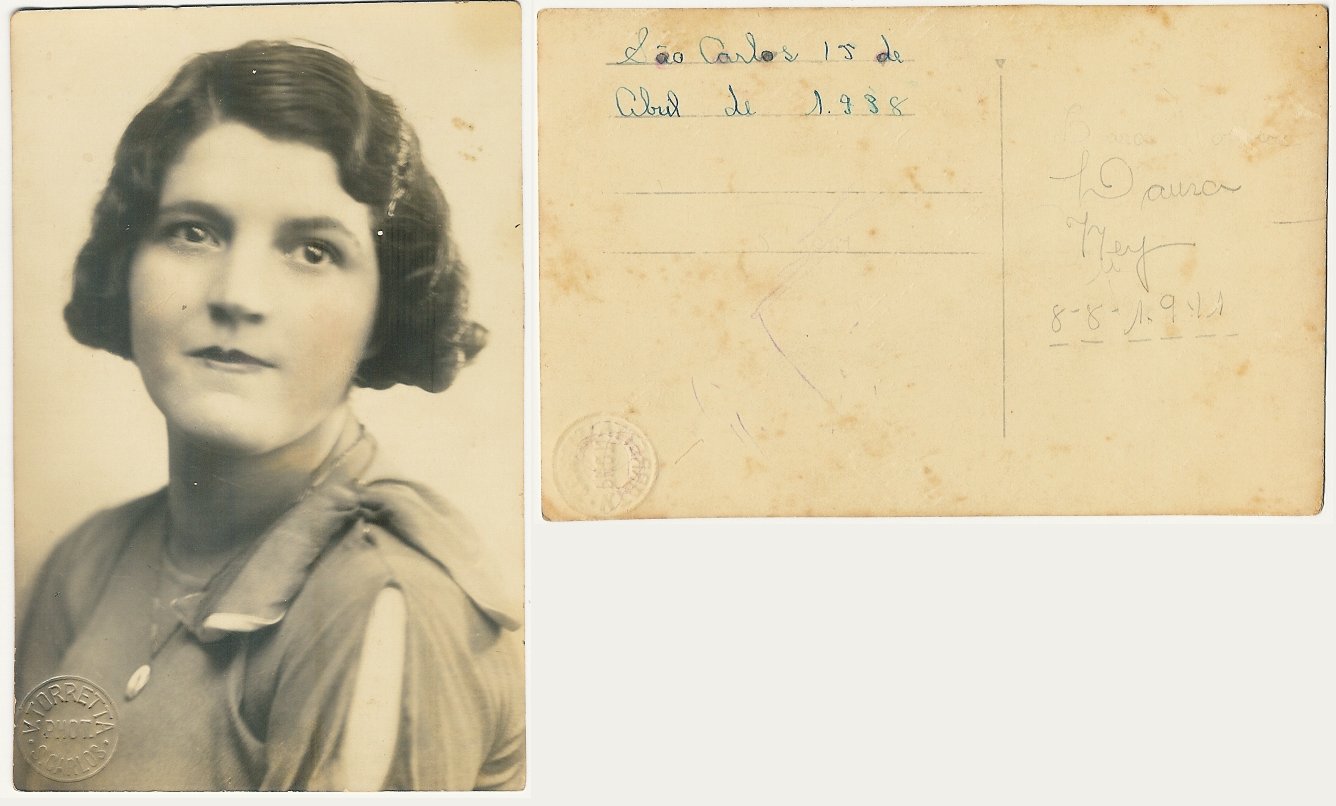 V. TORRETTA
PHOT.
S. CARLOS
São Carlos 15 de
Abril de 1.938
Daura
Ney
8-8-1.941